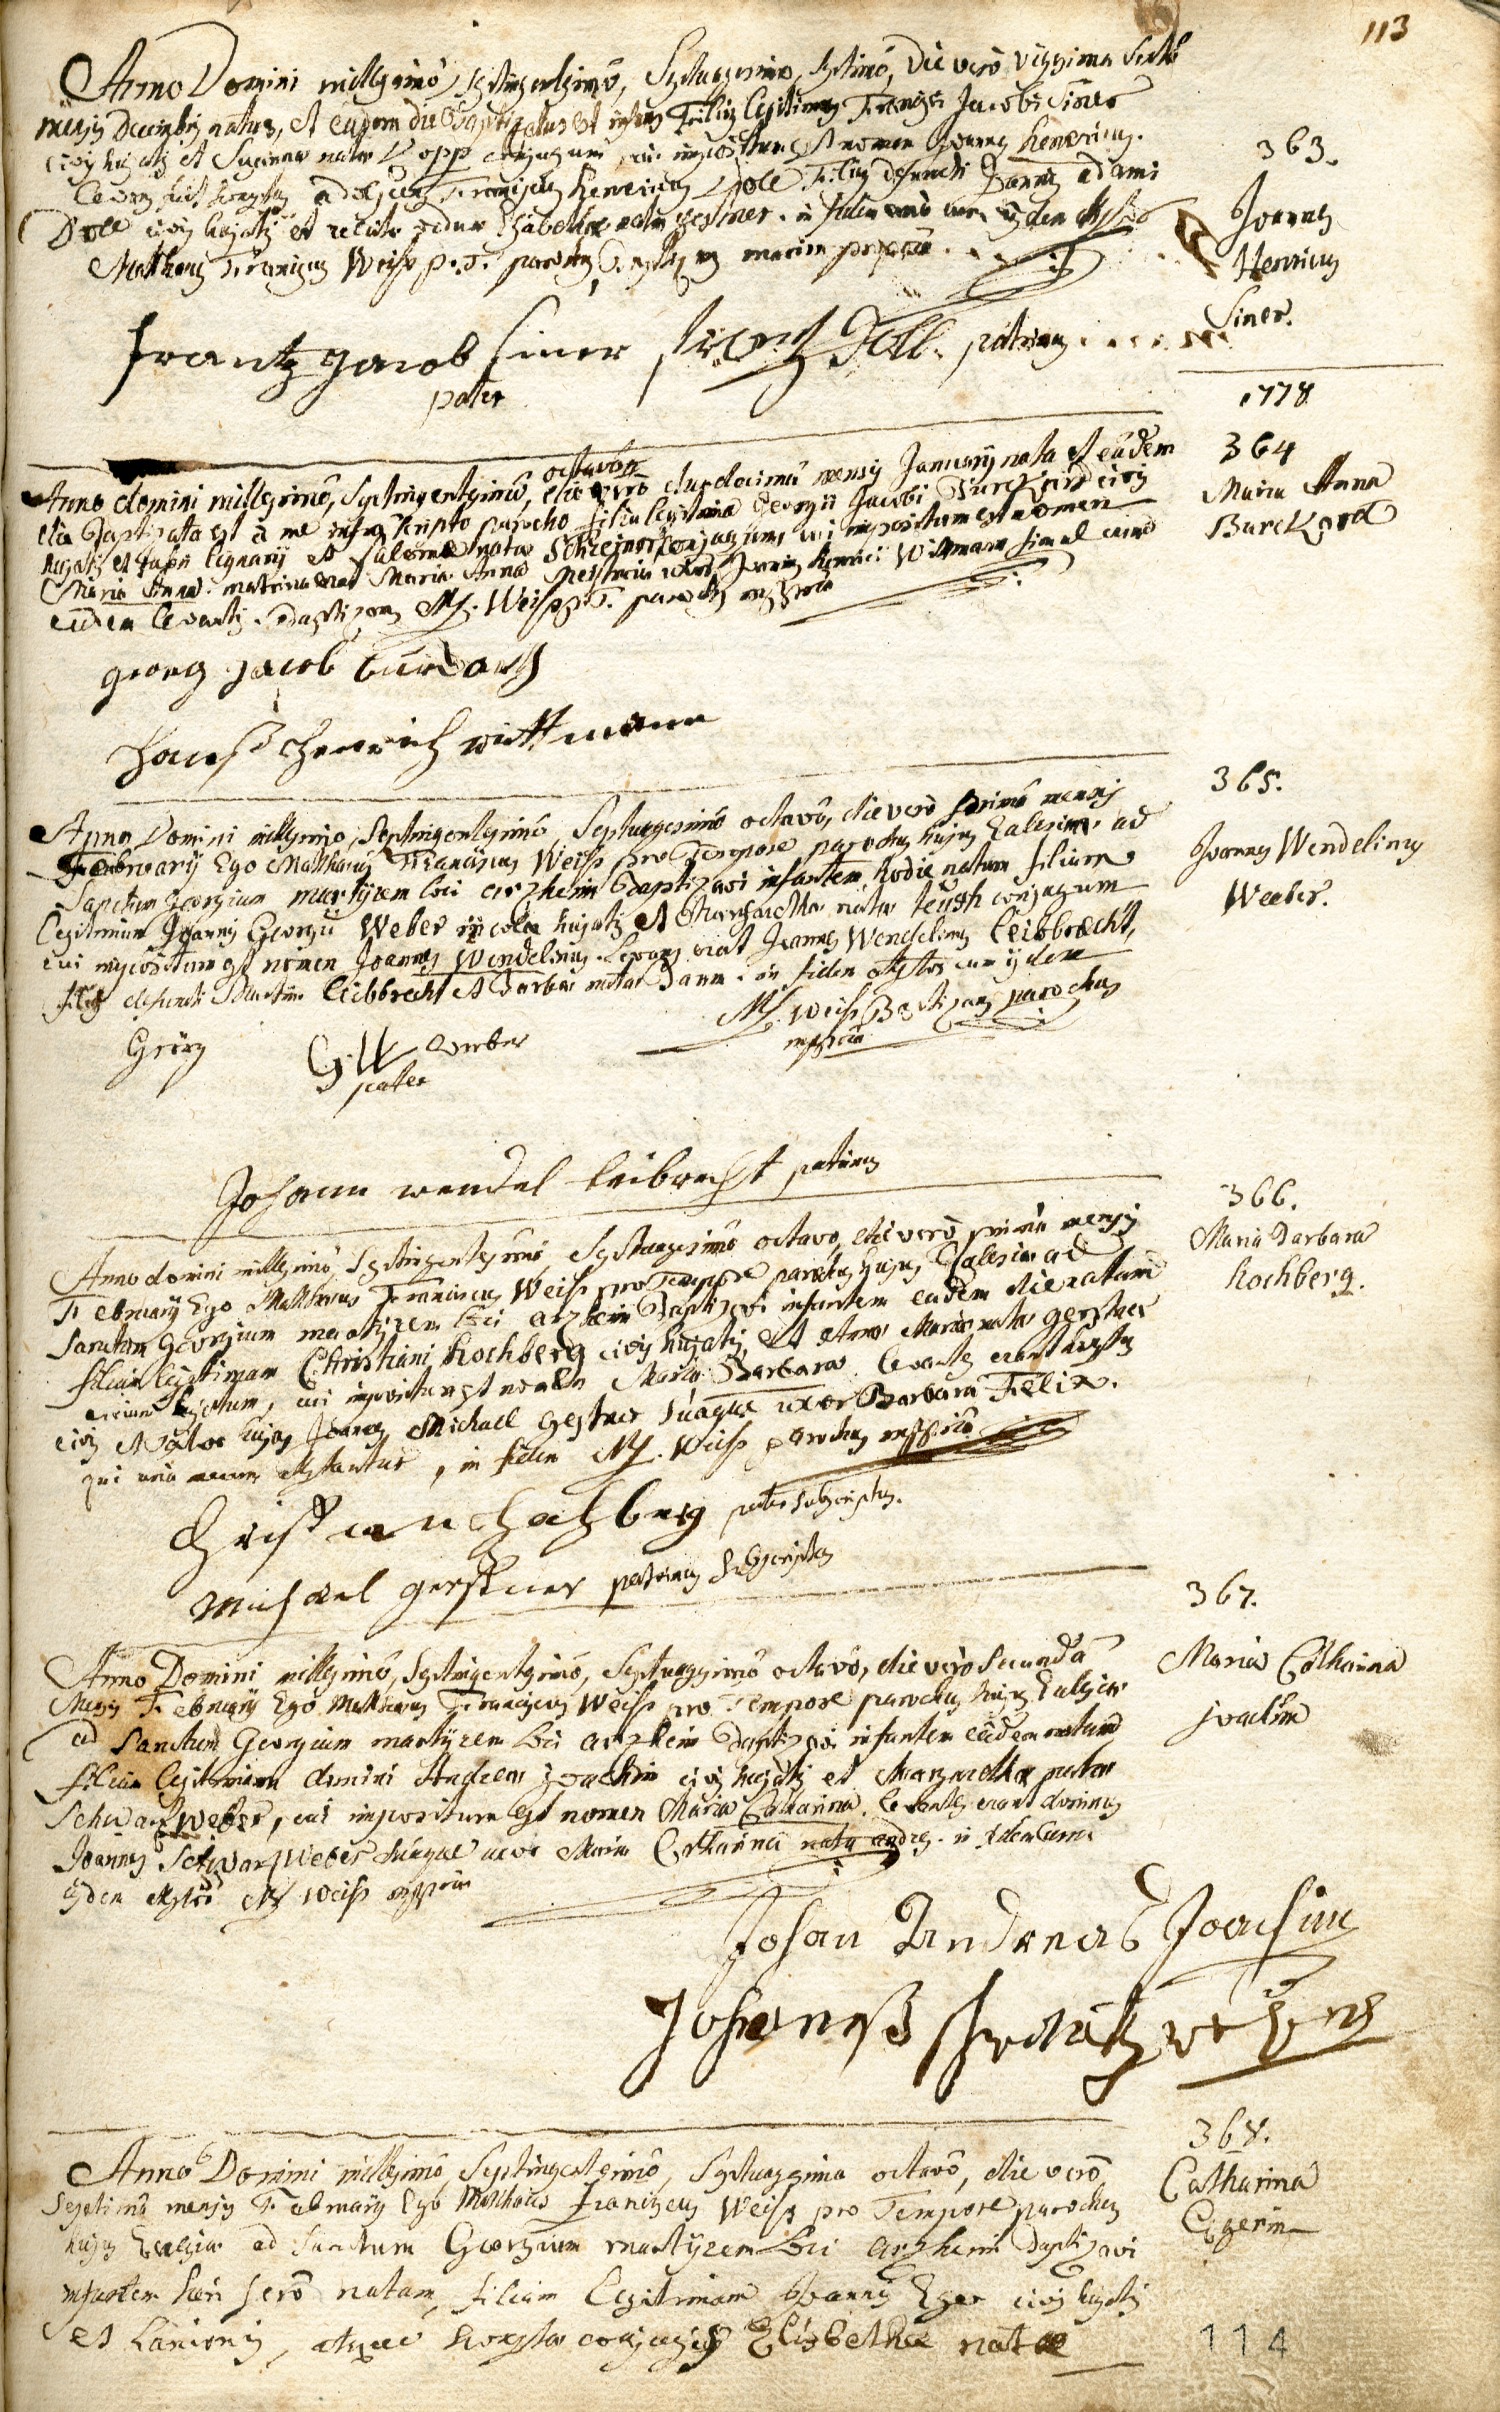 113
Anno Domini millesimo, septingentesimo, Septuagesimo, septimo, die vero vigesima sexta
mensis Decembris natus, et eadem die baptizatus est infans Filius legitimus Francisci Jacobi Siner
civis hujatis et Susannæ natæ conjugum, cui impositum est nomen Joannes Henricus.
Levans fuit honestus adolescens Franciscus Henricus Doll Filius defuncti Joannis adami
Doll civis hujatis et relictæ viduæ Elisabethæ natæ gestner. in fidem cum iisdem attestor
Matthæus Franciscus Weiss p.T. parochus manu propria
363.
Joannes
Henricus
Siner.
frantz jacob siner
pater
frantz Doll. patrinus
1778
364
Maria Anna
Burckard
octavo
Anno domini millesimo, septingentesimo, die vero duodecima mensis Januarij nata et eadem
die baptizata est à me infra scripto parocho filia legitima Georgii Jacobi Burckard civis
hujatis et fabri lignarij et Salome natæ Schreiner conjugum, cui impositum est nomen
Maria Anna. matrina erat Maria Anna uxor Joannis Henrici Wittmann simul cum
eadem levantis. Baptizans M. Weiss p.T. parochus mppria
georg jacob burckart
Hanß Henrich wittmann
365.
Joannes Wendelinus
Weeber.
Anno Domini millesimo, Septingentesimo, Septuagesimo octavo, die vero primo mensis
Februarij Ego Matthæus Franciscus Weiss pro Tempore parochus hujus Ecclesiæ ad
Sanctum Georgium martyrem loci arzheim baptizavi infantem hodie natum filium
legitimum Joannis Georgii Weber incolæ hujatis et Margarethæ natæ conjugum
cui impositum est nomen Joannes Wendelinus. Levans erat Joannes Wendelinus Leibbrecht,
filius defuncti Martini Leibbrecht et Barbaræ natæ Damm. in fidem attestor cum iisdem
M. Weiss Baptizans parochus
mppria
Georg
G W weeber
pater
Johann wendel leibrecht patrinus
366.
Maria Barbara
Hochberg.
Anno domini millesimo, septingentesimo, Septuagesimo octavo, die vero primâ mensis
Februarij Ego Matthæus Franciscus Weiss pro Tempore parochus hujus Ecclesiæ ad
Sanctum Georgium martyrem loci arzheim Baptizavi infantem eadem die natam
filiam legitimam Christiani Hochberg civis hujatis, et Annæ Mariæ natæ gerstner
conjugum, cui impositum est nomen Maria Barbara. levantes erant honestus
civis hujas Joannes Michael gestner suaque uxor Barbara Felix.
qui una mecum attestantur, in fidem M. Weiss parochus mppria
Christian Hochberg pater subscriptus.
Michael gerstner patrinus subscriptus
367.
Maria Catharina
joachim
Anno Domini millesimo, septingentesimo, Septuagesimo octavo, die vero secunda
Mensis Februarij Ego Matthæus Franciscus Weiss pro Tempore parochus hujus Ecclesiæ
ad Sanctum Georgium martyrem loci arzheim Baptizavi infantem eadem natam
filiam legitimam domini Andreæ joachim civis hujatis et Margarethæ natæ
Schwartzweber, cui impositum est nomen Maria Catharina. levantes erant dominus
Joannes Schwartzweber suaque uxor Maria Catharina nata in fidem cum
iisdem attestor M Weiss mppria
Johan Andreas Joachim
Johannes schwartzweber
368.
Catharina
Egerin
Anno Domini millesimo, Septingentesimo, Septuagesima octavo, die vero
Septima mensis Februarij Ego Matthæus Franciscus Weiss pro Tempore parochus
hujus Ecclesiæ ad Sanctum Georgium martyrem loci arzheim baptizavi
infantem heri sero natam, filiam legitimam Joannis Eger civis hujatis
et Lanionis, atque honestæ conjugis Elisbethæ natæ
114